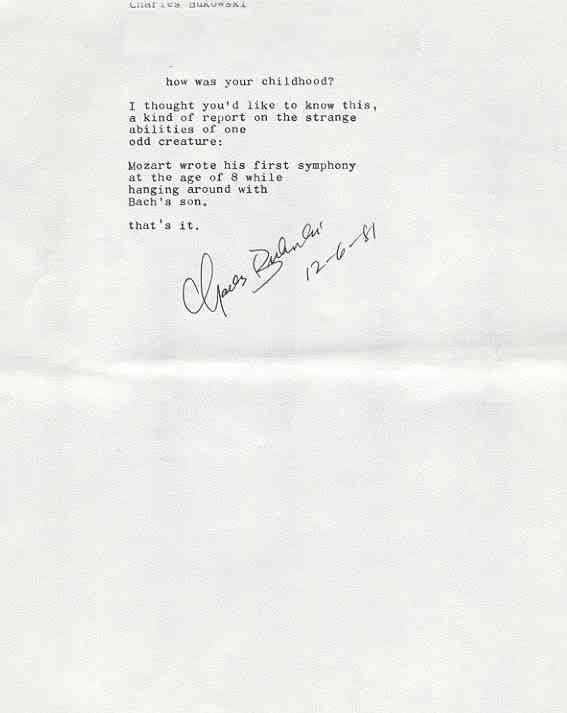 Charles Bukowski
how was your childhood?
I thought you'd like to know this,
a kind of report on the strange
abilities of one
odd creature:
Mozart wrote his first symphony
at the age of 8 while
hanging around with
Bach's son.
that's it.
Charles Bukowski
12-6-81